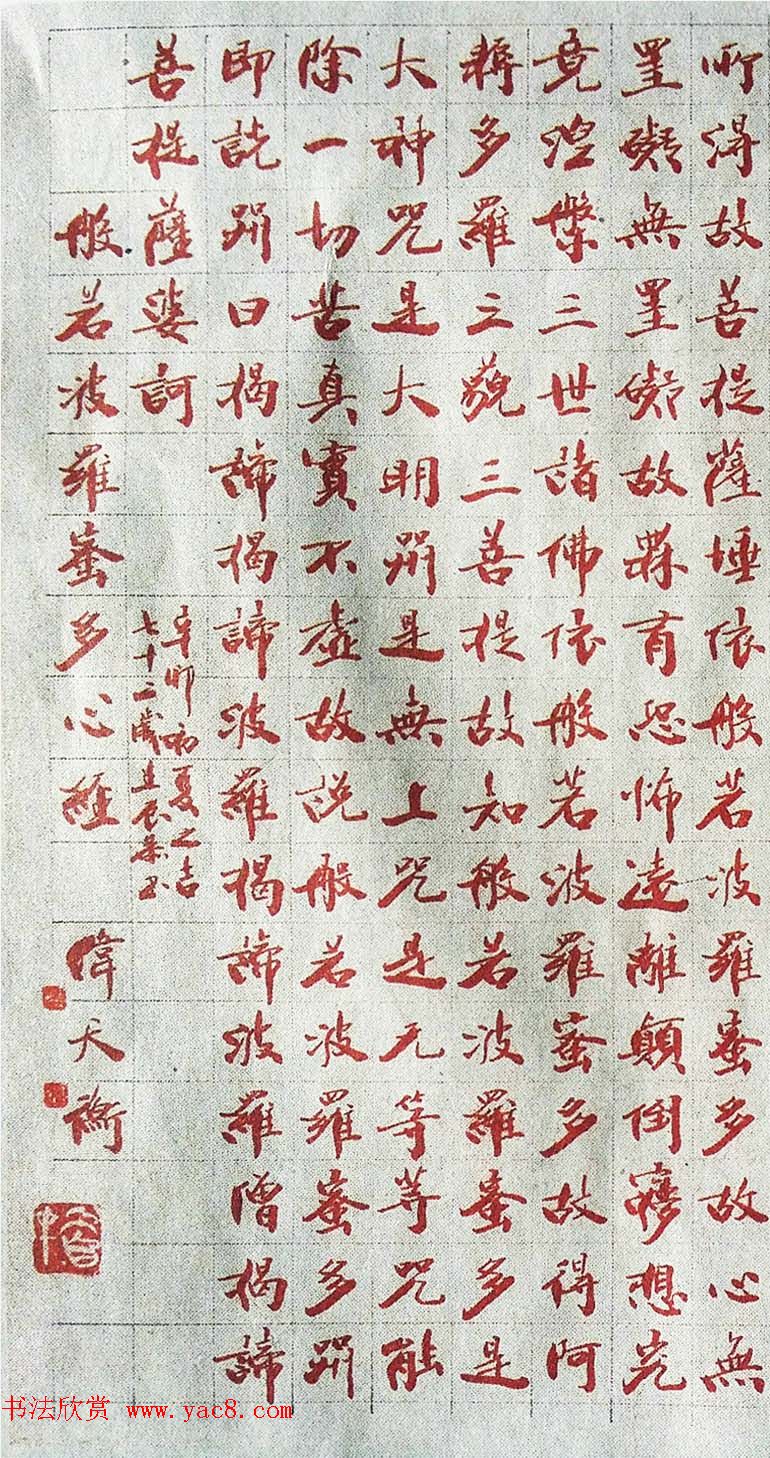 所得故菩提薩埵依般若波羅蜜多故心無
罣礙無罣礙故無有恐怖遠離顛倒夢想究
竟涅槃三世諸佛依般若波羅蜜多故得阿
耨多羅三藐三菩提故知般若波羅蜜多是
大神咒是大明咒是無上咒是无等等咒能
除一切苦真實不虛故說般若波羅蜜多咒
即說咒曰揭諦揭諦波羅揭諦波羅僧揭諦
菩提薩婆訶
辛卯初夏之吉
七十二歲
般若波羅蜜多心經
偉天
书法欣赏 www.yac8.com